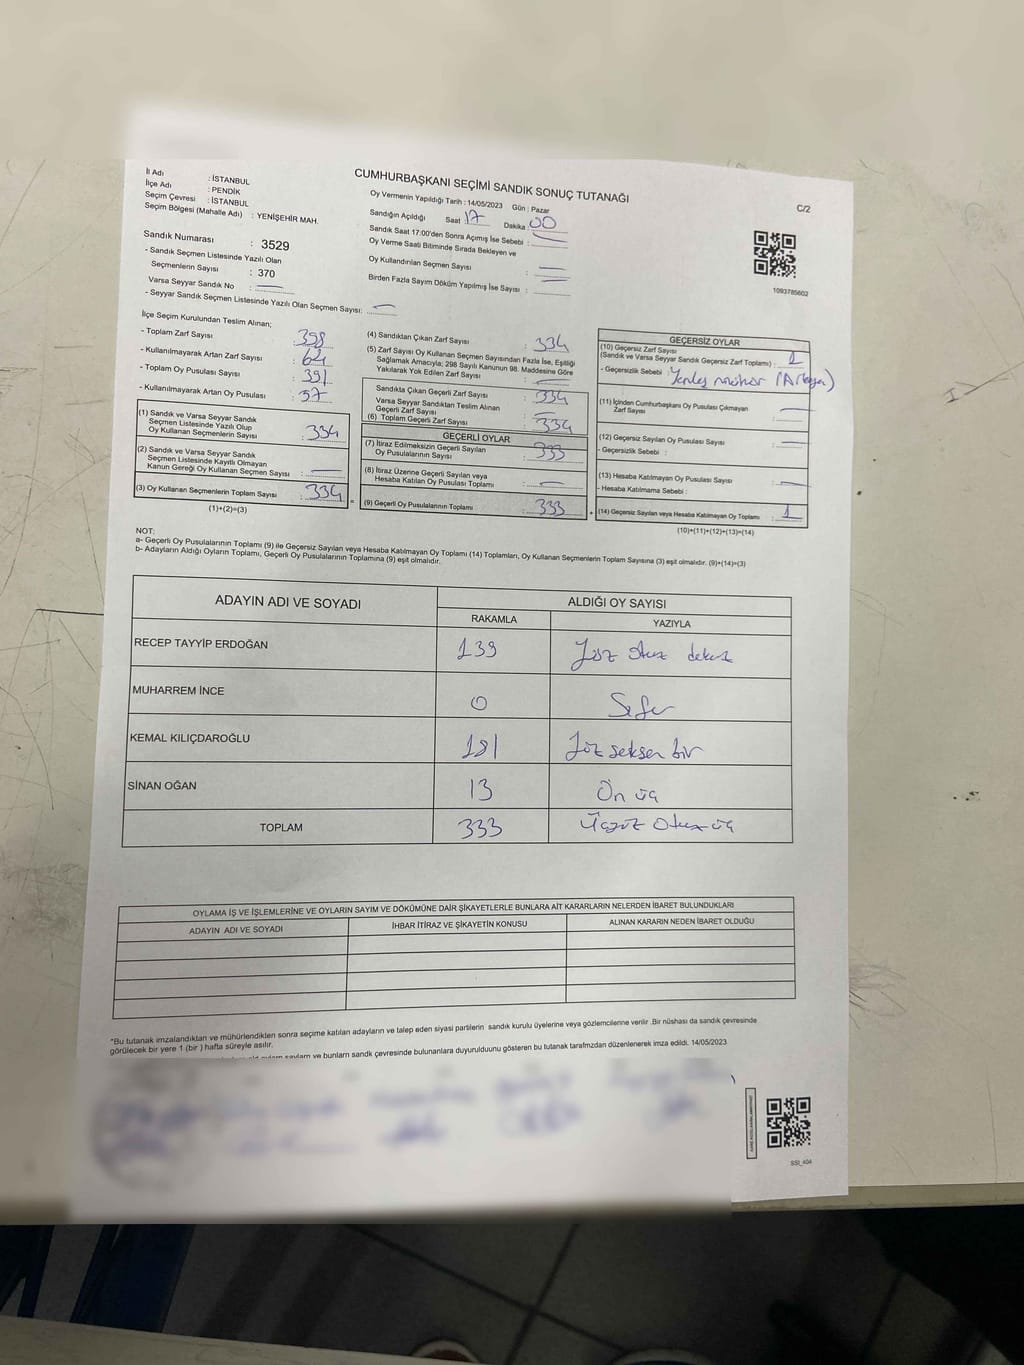 CUMHURBAŞKANI SEÇİMİ SANDIK SONUÇ TUTANAĞI
C/2
İl Adı : İSTANBUL
İlçe Adı : PENDİK
Seçim Çevresi : İSTANBUL
Seçim Bölgesi (Mahalle Adı) : YENİŞEHİR MAH.
Sandık Numarası : 3529
- Sandık Seçmen Listesinde Yazılı Olan
Seçmenlerin Sayısı : 370
Varsa Seyyar Sandık No : —
- Seyyar Sandık Seçmen Listesinde Yazılı Olan Seçmen Sayısı: —
Oy Vermenin Yapıldığı Tarih : 14/05/2023 Gün : Pazar
Sandığın Açıldığı Saat 17 Dakika : 00
Sandık Saat 17:00'den Sonra Açımış İse Sebebi : —
Oy Verme Saati Bitiminde Sırada Bekleyen ve
Oy Kullandırılan Seçmen Sayısı : —
Birden Fazla Sayım Döküm Yapılmış İse Sayısı : —
1093785602
İlçe Seçim Kurulundan Teslim Alınan;
- Toplam Zarf Sayısı : 398
- Kullanılmayarak Artan Zarf Sayısı : 64
- Toplam Oy Pusulası Sayısı : 391
- Kullanılmayarak Artan Oy Pusulası : 57
(1) Sandık ve Varsa Seyyar Sandık
Seçmen Listesinde Yazılı Olup
Oy Kullanan Seçmenlerin Sayısı : 334
(2) Sandık ve Varsa Seyyar Sandık
Seçmen Listesinde Kayıtlı Olmayan
Kanun Gereği Oy Kullanan Seçmen Sayısı : —
(3) Oy Kullanan Seçmenlerin Toplam Sayısı : 334
(1)+(2)=(3)
(4) Sandıktan Çıkan Zarf Sayısı : 334
(5) Zarf Sayısı Oy Kullanan Seçmen Sayısından Fazla İse, Eşitliği
Sağlamak Amacıyla; 298 Sayılı Kanunun 98. Maddesine Göre
Yakılarak Yok Edilen Zarf Sayısı : —
Sandıkta Çıkan Geçerli Zarf Sayısı : 334
Varsa Seyyar Sandıktan Teslim Alınan
Geçerli Zarf Sayısı : —
(6) Toplam Geçerli Zarf Sayısı : 334
GEÇERLİ OYLAR
(7) İtiraz Edilmeksizin Geçerli Sayılan
Oy Pusulalarının Sayısı : 333
(8) İtiraz Üzerine Geçerli Sayılan veya
Hesaba Katılan Oy Pusulası Toplamı : —
(9) Geçerli Oy Pusulalarının Toplamı : 333
GEÇERSİZ OYLAR
(10) Geçersiz Zarf Sayısı
(Sandık ve Varsa Seyyar Sandık Geçersiz Zarf Toplamı) : 1
- Geçersizlik Sebebi :
(11) İçinden Cumhurbaşkanı Oy Pusulası Çıkmayan
Zarf Sayısı : —
(12) Geçersiz Sayılan Oy Pusulası Sayısı : —
- Geçersizlik Sebebi :
(13) Hesaba Katılmayan Oy Pusulası Sayısı : —
- Hesaba Katılmama Sebebi :
(14) Geçersiz Sayılan veya Hesaba Katılmayan Oy Toplamı : 1
(10)+(11)+(12)+(13)=(14)
NOT:
a- Geçerli Oy Pusulalarının Toplamı (9) ile Geçersiz Sayılan veya Hesaba Katılmayan Oy Toplamı (14) Toplamları, Oy Kullanan Seçmenlerin Toplam Sayısına (3) eşit olmalıdır. (9)+(14)=(3)
b- Adayların Aldığı Oyların Toplamı, Geçerli Oy Pusulalarının Toplamına (9) eşit olmalıdır.
ADAYIN ADI VE SOYADI ALDIĞI OY SAYISI
RAKAMLA YAZIYLA
RECEP TAYYİP ERDOĞAN 139 Yüz otuz dokuz
MUHARREM İNCE 0 Sıfır
KEMAL KILIÇDAROĞLU 181 Yüz seksen bir
SİNAN OĞAN 13 On üç
TOPLAM 333 Üçyüz Otuz üç
OYLAMA İŞ VE İŞLEMLERİNE VE OYLARIN SAYIM VE DÖKÜMÜNE DAİR ŞİKAYETLERLE BUNLARA AİT KARARLARIN NELERDEN İBARET BULUNDUKLARI
ADAYIN ADI VE SOYADI İHBAR İTİRAZ VE ŞİKAYETİN KONUSU ALINAN KARARIN NEDEN İBARET OLDUĞU
"Bu tutanak imzalandıktan ve mühürlendikten sonra seçime katılan adayların ve talep eden siyasi partilerin sandık kurulu üyelerine veya gözlemcilerine verilir .Bir nüshası da sandık çevresinde
görülecek bir yere 1 (bir ) hafta süreyle asılır.
ve bunların sandk çevresinde bulunanlara duyurulduunu gösteren bu tutanak tarafmzdan düzenlenerek imza edildi. 14/05/2023
SSI_404